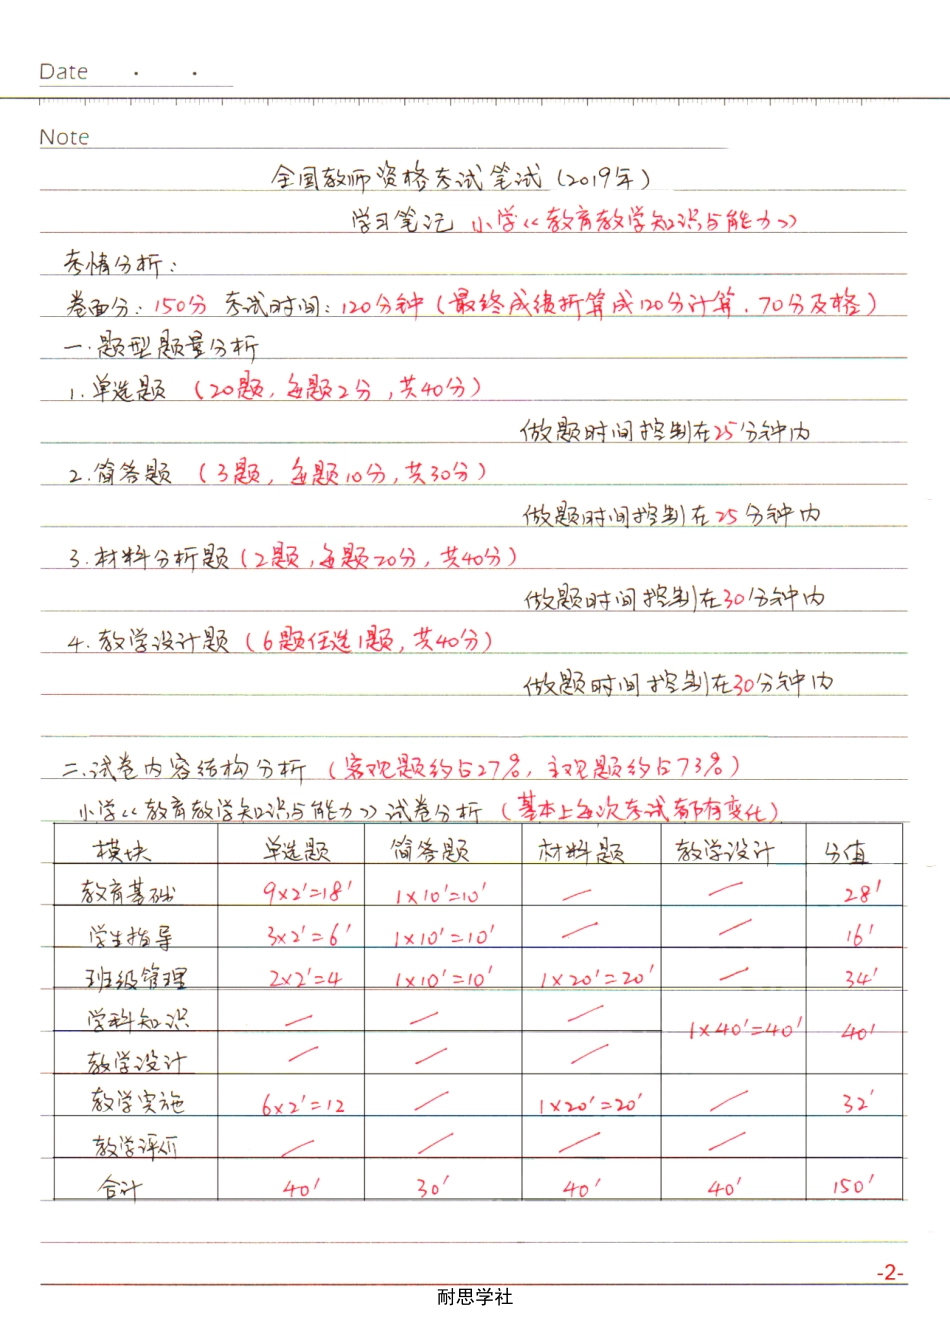 Date · ·
Note
全国教师资格考试笔试(2019年)
学习笔记 小学《教育教学知识与能力》
考情分析:
卷面分:150分 考试时间:120分钟(最终成绩折算成120分计算,70分及格)
一.题型题量分析
1.单选题 (20题,每题2分,共40分)
做题时间控制在25分钟内
2.简答题 (3题,每题10分,共30分)
做题时间控制在25分钟内
3.材料分析题(2题,每题20分,共40分)
做题时间控制在30分钟内
4.教学设计题(6题任选1题,共40分)
做题时间控制在30分钟内
二.试卷内容结构分析 (客观题约占27%,主观题约占73%)
小学《教育教学知识与能力》试卷分析 (基本上每次考试都有变化)
模块 单选题 简答题 材料题 教学设计 分值
教育基础 9×2'=18' 1×10'=10' — — 28'
学生指导 3×2'=6' 1×10'=10' — — 16'
班级管理 2×2'=4 1×10'=10' 1×20'=20' — 34'
学科知识 — — — 1×40'=40' 40'
教学设计 — — —
教学实施 6×2'=12 — 1×20'=20' — 32'
教学评价 — — — —
合计 40' 30' 40' 40' 150'
-2-
耐思学社